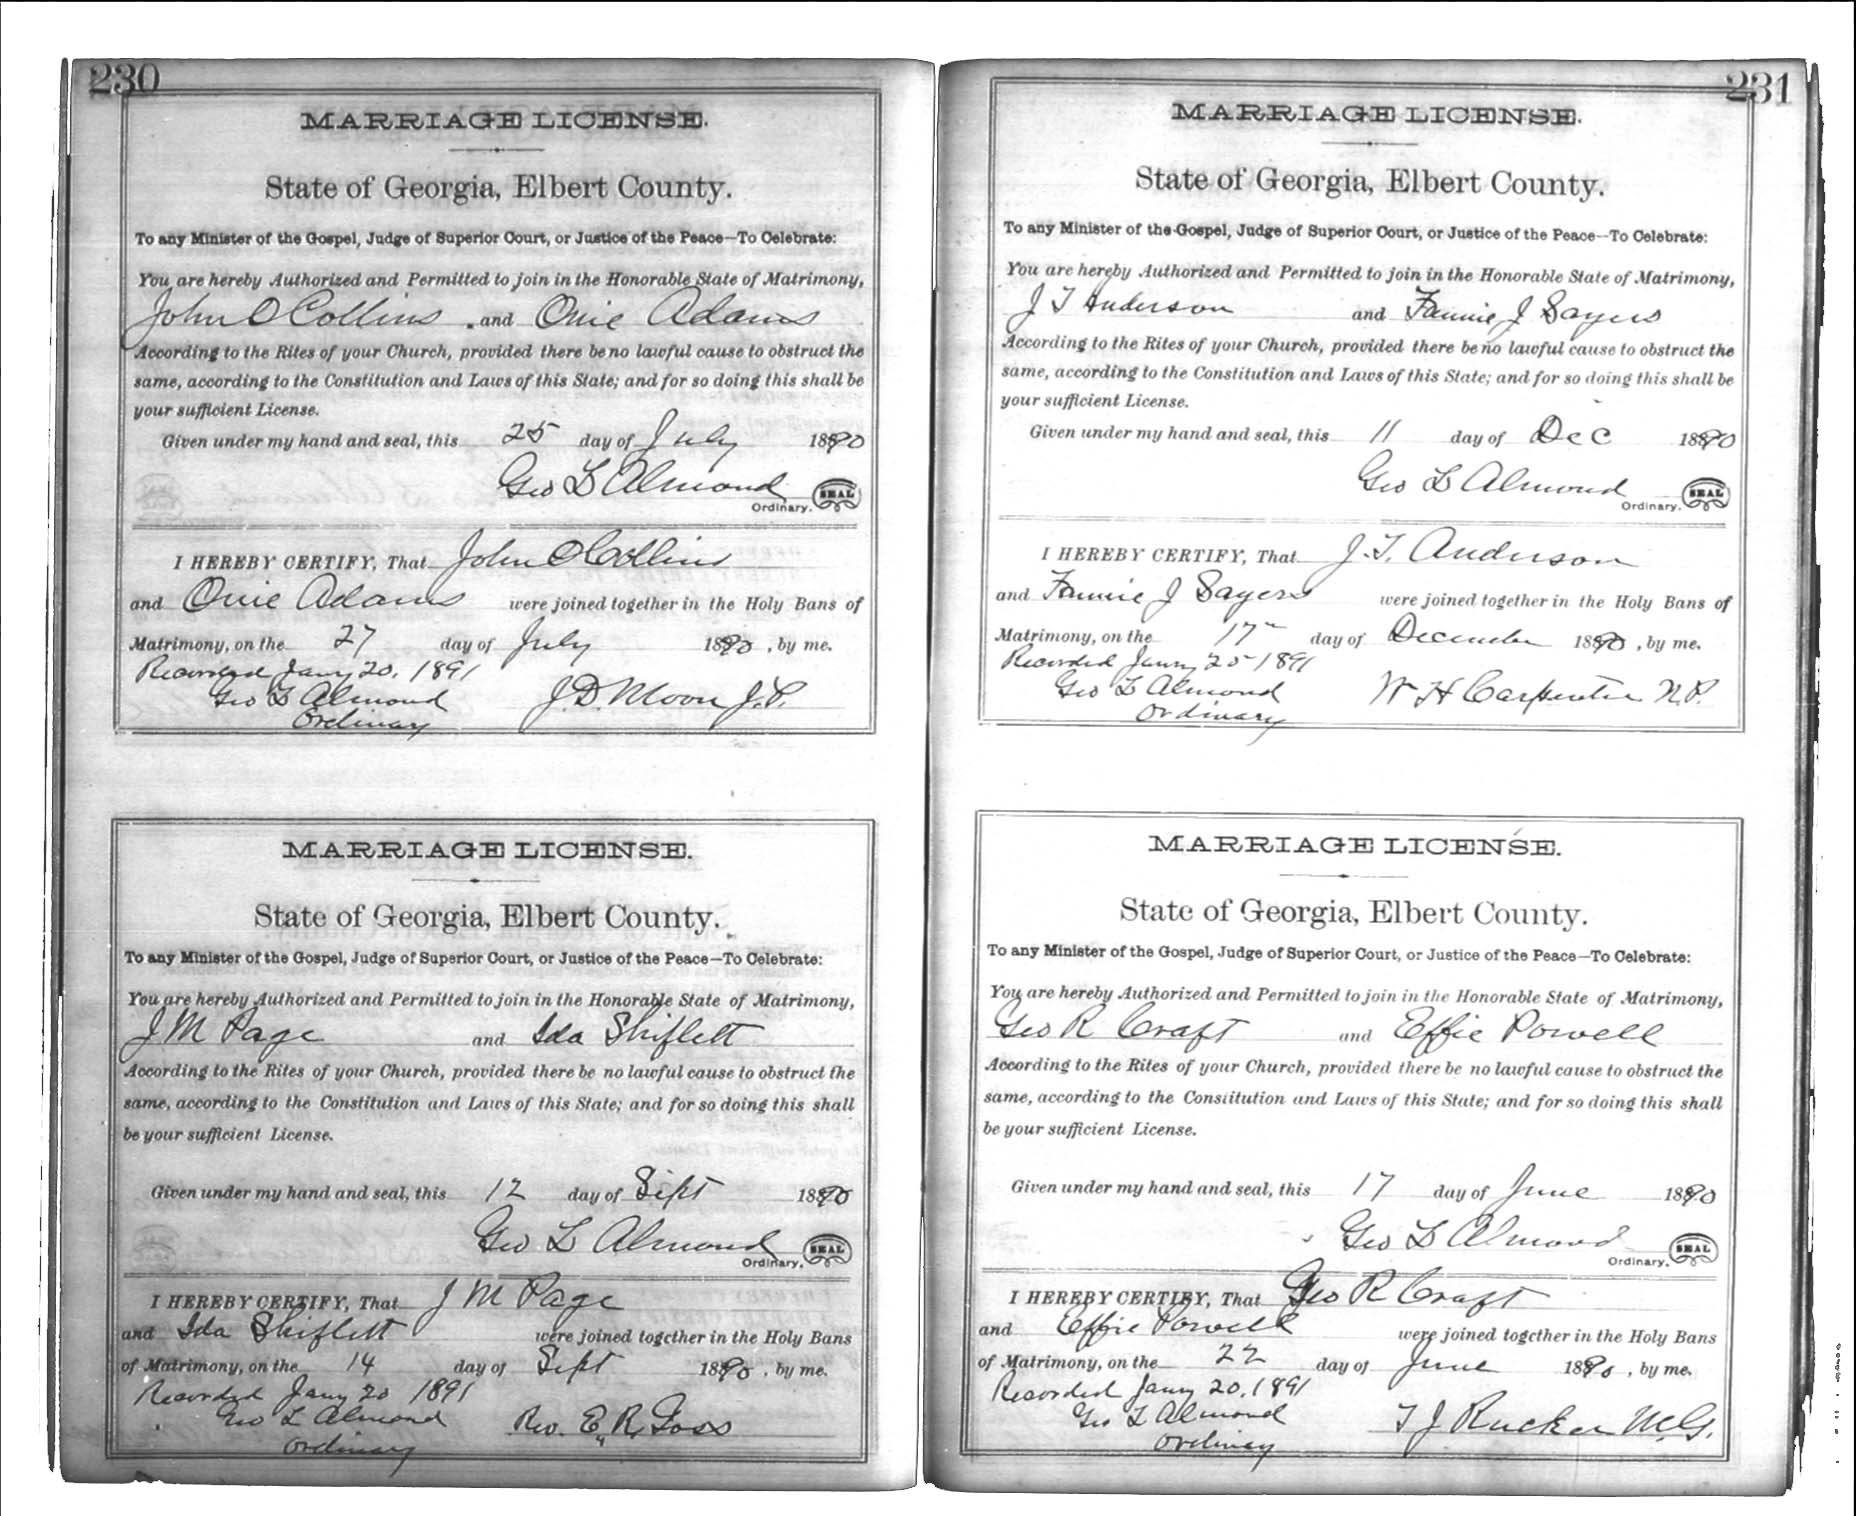 230
MARRIAGE LICENSE.
State of Georgia, Elbert County.
To any Minister of the Gospel, Judge of Superior Court, or Justice of the Peace—To Celebrate:
You are hereby Authorized and Permitted to join in the Honorable State of Matrimony,
John O Collins and Onie Adams
According to the Rites of your Church, provided there be no lawful cause to obstruct the
same, according to the Constitution and Laws of this State; and for so doing this shall be
your sufficient License.
Given under my hand and seal, this 25 day of July 1890
Geo L Almond
Ordinary. SEAL
I HEREBY CERTIFY, That John O Collins
and Onie Adams were joined together in the Holy Bans of
Matrimony, on the 27 day of July 1890, by me.
Recorded Jany 20, 1891
Geo L Almond J. D. Moon J. P.
Ordinary
MARRIAGE LICENSE.
State of Georgia, Elbert County.
To any Minister of the Gospel, Judge of Superior Court, or Justice of the Peace—To Celebrate:
You are hereby Authorized and Permitted to join in the Honorable State of Matrimony,
J M Page and Ida Shiflett
According to the Rites of your Church, provided there be no lawful cause to obstruct the
same, according to the Constitution and Laws of this State; and for so doing this shall
be your sufficient License.
Given under my hand and seal, this 12 day of Sept 1890
Geo L Almond
Ordinary. SEAL
I HEREBY CERTIFY, That J M Page
and Ida Shiflett were joined together in the Holy Bans
of Matrimony, on the 14 day of Sept 1890, by me.
Recorded Jany 20 1891
Geo L Almond Rev. E. R. Goss
Ordinary
231
MARRIAGE LICENSE.
State of Georgia, Elbert County.
To any Minister of the Gospel, Judge of Superior Court, or Justice of the Peace--To Celebrate:
You are hereby Authorized and Permitted to join in the Honorable State of Matrimony,
J T Anderson and Fannie J Sayers
According to the Rites of your Church, provided there be no lawful cause to obstruct the
same, according to the Constitution and Laws of this State; and for so doing this shall be
your sufficient License.
Given under my hand and seal, this 11 day of Dec 1890
Geo L Almond
Ordinary. SEAL
I HEREBY CERTIFY, That J. T. Anderson
and Fannie J Sayers were joined together in the Holy Bans of
Matrimony, on the 17" day of December 1890, by me.
Recorded Jany 25 1891
Geo L Almond W H Carpenter N. P.
Ordinary
MARRIAGE LICENSE.
State of Georgia, Elbert County.
To any Minister of the Gospel, Judge of Superior Court, or Justice of the Peace—To Celebrate:
You are hereby Authorized and Permitted to join in the Honorable State of Matrimony,
Geo R Craft and Effie Powell
According to the Rites of your Church, provided there be no lawful cause to obstruct the
same, according to the Constitution and Laws of this State; and for so doing this shall
be your sufficient License.
Given under my hand and seal, this 17 day of June 1890
Geo L Almond
Ordinary. SEAL
I HEREBY CERTIFY, That Geo R Craft
and Effie Powell were joined together in the Holy Bans
of Matrimony, on the 22 day of June 1890, by me.
Recorded Jany 20, 1891
Geo L Almond T J Rucker M. G.
Ordinary